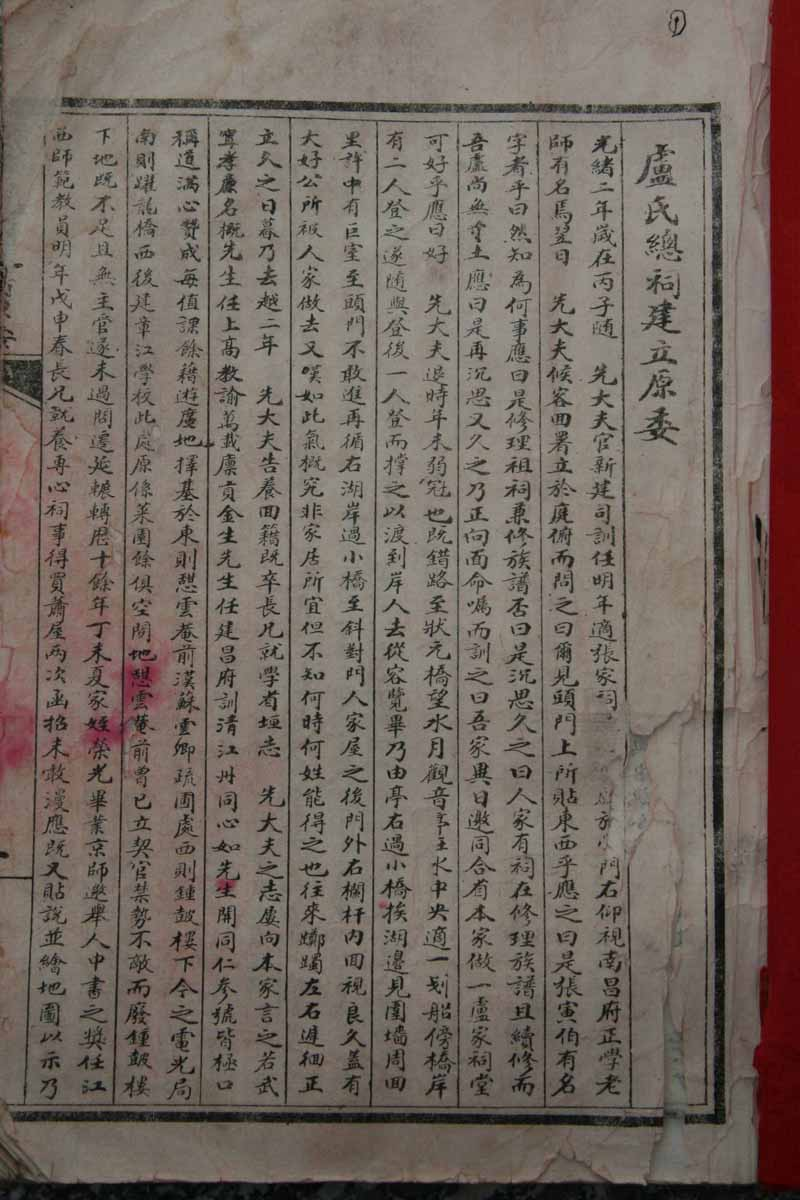 ①
盧氏總祠建立原委
光緒二年歲在丙子隨 先大夫官新建司訓任明年適張家祠 門右仰視南昌府正學老
師有名焉翌日 先大夫候客回署立於庭俯而問之曰爾見頭門上所貼東西乎應之曰是張寅伯有名
字者乎曰然知為何事應曰是修理祖祠兼修族譜否曰是沉思久之曰人家有祠在修理族譜且續修而
吾盧尚無寸土應曰是再沉思又久之乃正向面命囑而訓之曰吾家異日邀同合省本家做一盧家祠堂
可好乎應曰好 先大夫退時年未弱冠也既錯路至狀元橋望水月觀音亭主水中央適一划船傍橋岸
有二人登之遂隨與登後一人登而撑之以渡到岸人去從容覽畢乃由亭右過小橋挨湖邊見圍墻周回
里許中有巨室至頭門不敢進再循右湖岸過小橋至斜對門人家屋之後門外右欄杆內回視良久蓋有
大好公所被人家做去又嘆如此氣概究非家居所宜但不知何時何姓能得之也往來躑躅左右遲徊正
立久之日暮乃去越二年 先大夫告養回籍既卒長兄就學省垣志 先大夫之志屢向本家言之若武
寧孝廉名概先生任上高教諭萬載廩貢金生先生任建昌府訓清江州同心如先生開同仁參號皆極口
稱道滿心贊成每值課餘藉遊廛地擇基於東則憇雲菴前漢蘇雲卿疏圃處西則鍾鼓樓下今之電光局
南則躍龍橋西後建章江學校此處原係菜園餘俱空閒地憇雲菴前曾已立契官禁勢不敵而廢鍾鼓樓
下地既不足且無主管遂未過問遷延轆轉歷十餘年丁未夏家姪榮光畢業京師邀舉人中書之獎任江
西師範教員明年戊申春長兄就養專心祠事得買蕭屋兩次函招未敢漫應既又貼說並繪地圖以示乃